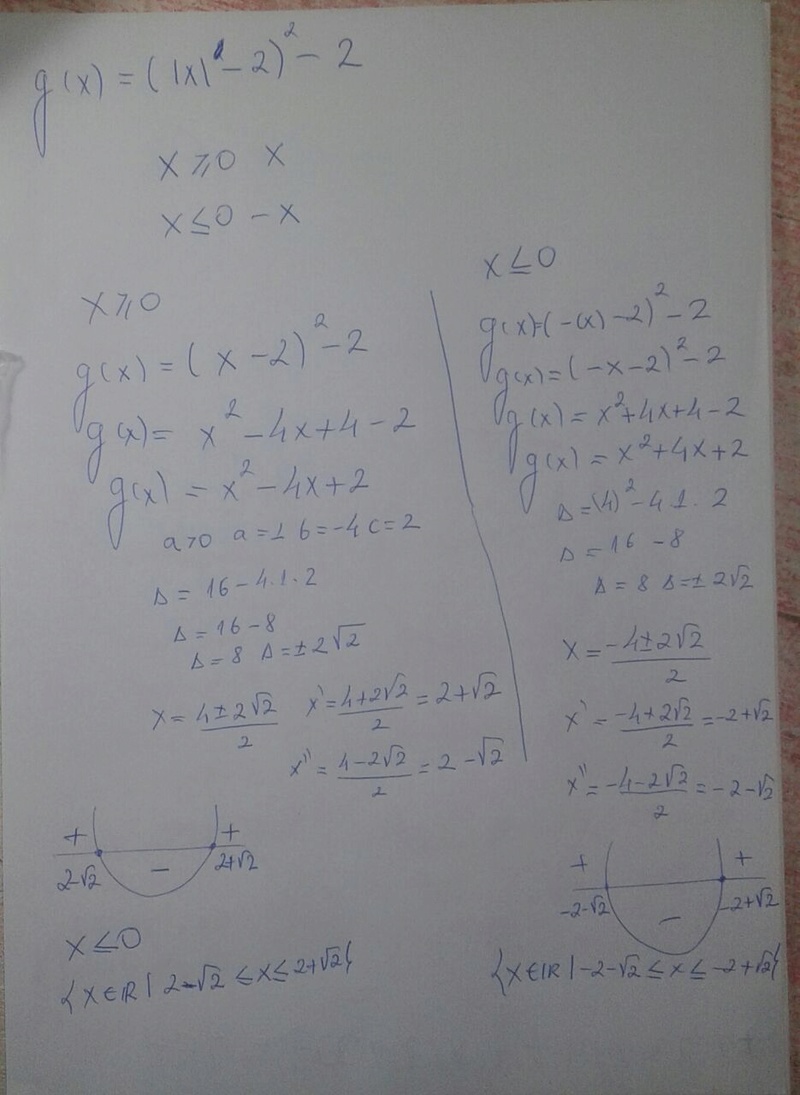 g(x) = (|x| - 2)² - 2
x ≥ 0 x
x ≤ 0 - x
x ≥ 0
g(x) = (x - 2)² - 2
g(x) = x² - 4x + 4 - 2
g(x) = x² - 4x + 2
a>0 a = 1 b = -4 c = 2
Δ = 16 - 4.1.2
Δ = 16 - 8
Δ = 8 Δ = ± 2√2
x = (4 ± 2√2)/2 x' = (4 + 2√2)/2 = 2 + √2
x'' = (4 - 2√2)/2 = 2 - √2
+ - +
2-√2 2+√2
x ≤ 0
{x ∈ IR | 2-√2 ≤ x ≤ 2+√2}
x ≤ 0
g(x) = (-(x) - 2)² - 2
g(x) = (-x - 2)² - 2
g(x) = x² + 4x + 4 - 2
g(x) = x² + 4x + 2
Δ = (4)² - 4.1.2
Δ = 16 - 8
Δ = 8 Δ = ± 2√2
x = (-4 ± 2√2)/2
x' = (-4 + 2√2)/2 = -2 + √2
x'' = (-4 - 2√2)/2 = -2 - √2
+ - +
-2-√2 -2+√2
{x ∈ IR | -2-√2 ≤ x ≤ -2+√2}